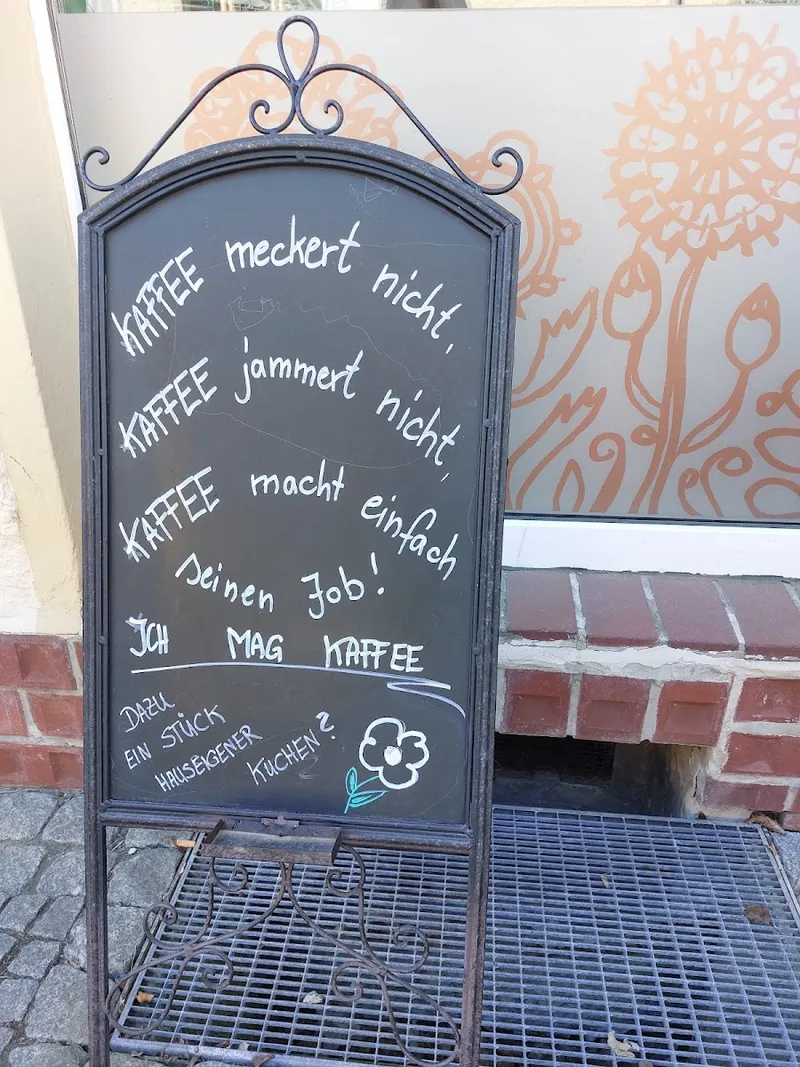 KAFFEE meckert nicht,
KAFFEE jammert nicht,
KAFFEE macht einfach
seinen Job!
ICH MAG KAFFEE
DAZU
EIN STÜCK
HAUSEIGENER
KUCHEN?